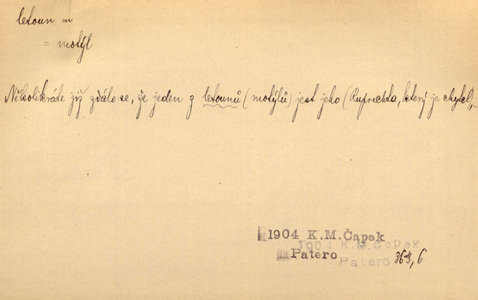 letoun m
= motýl
Několikráte jí zdálo se, že jeden z letounů (motýlů) jest jako (Ruprechta, který je chytal),
1904 K.M.Čapek
1904 K.M.Čapek
Patero 363,6
Patero